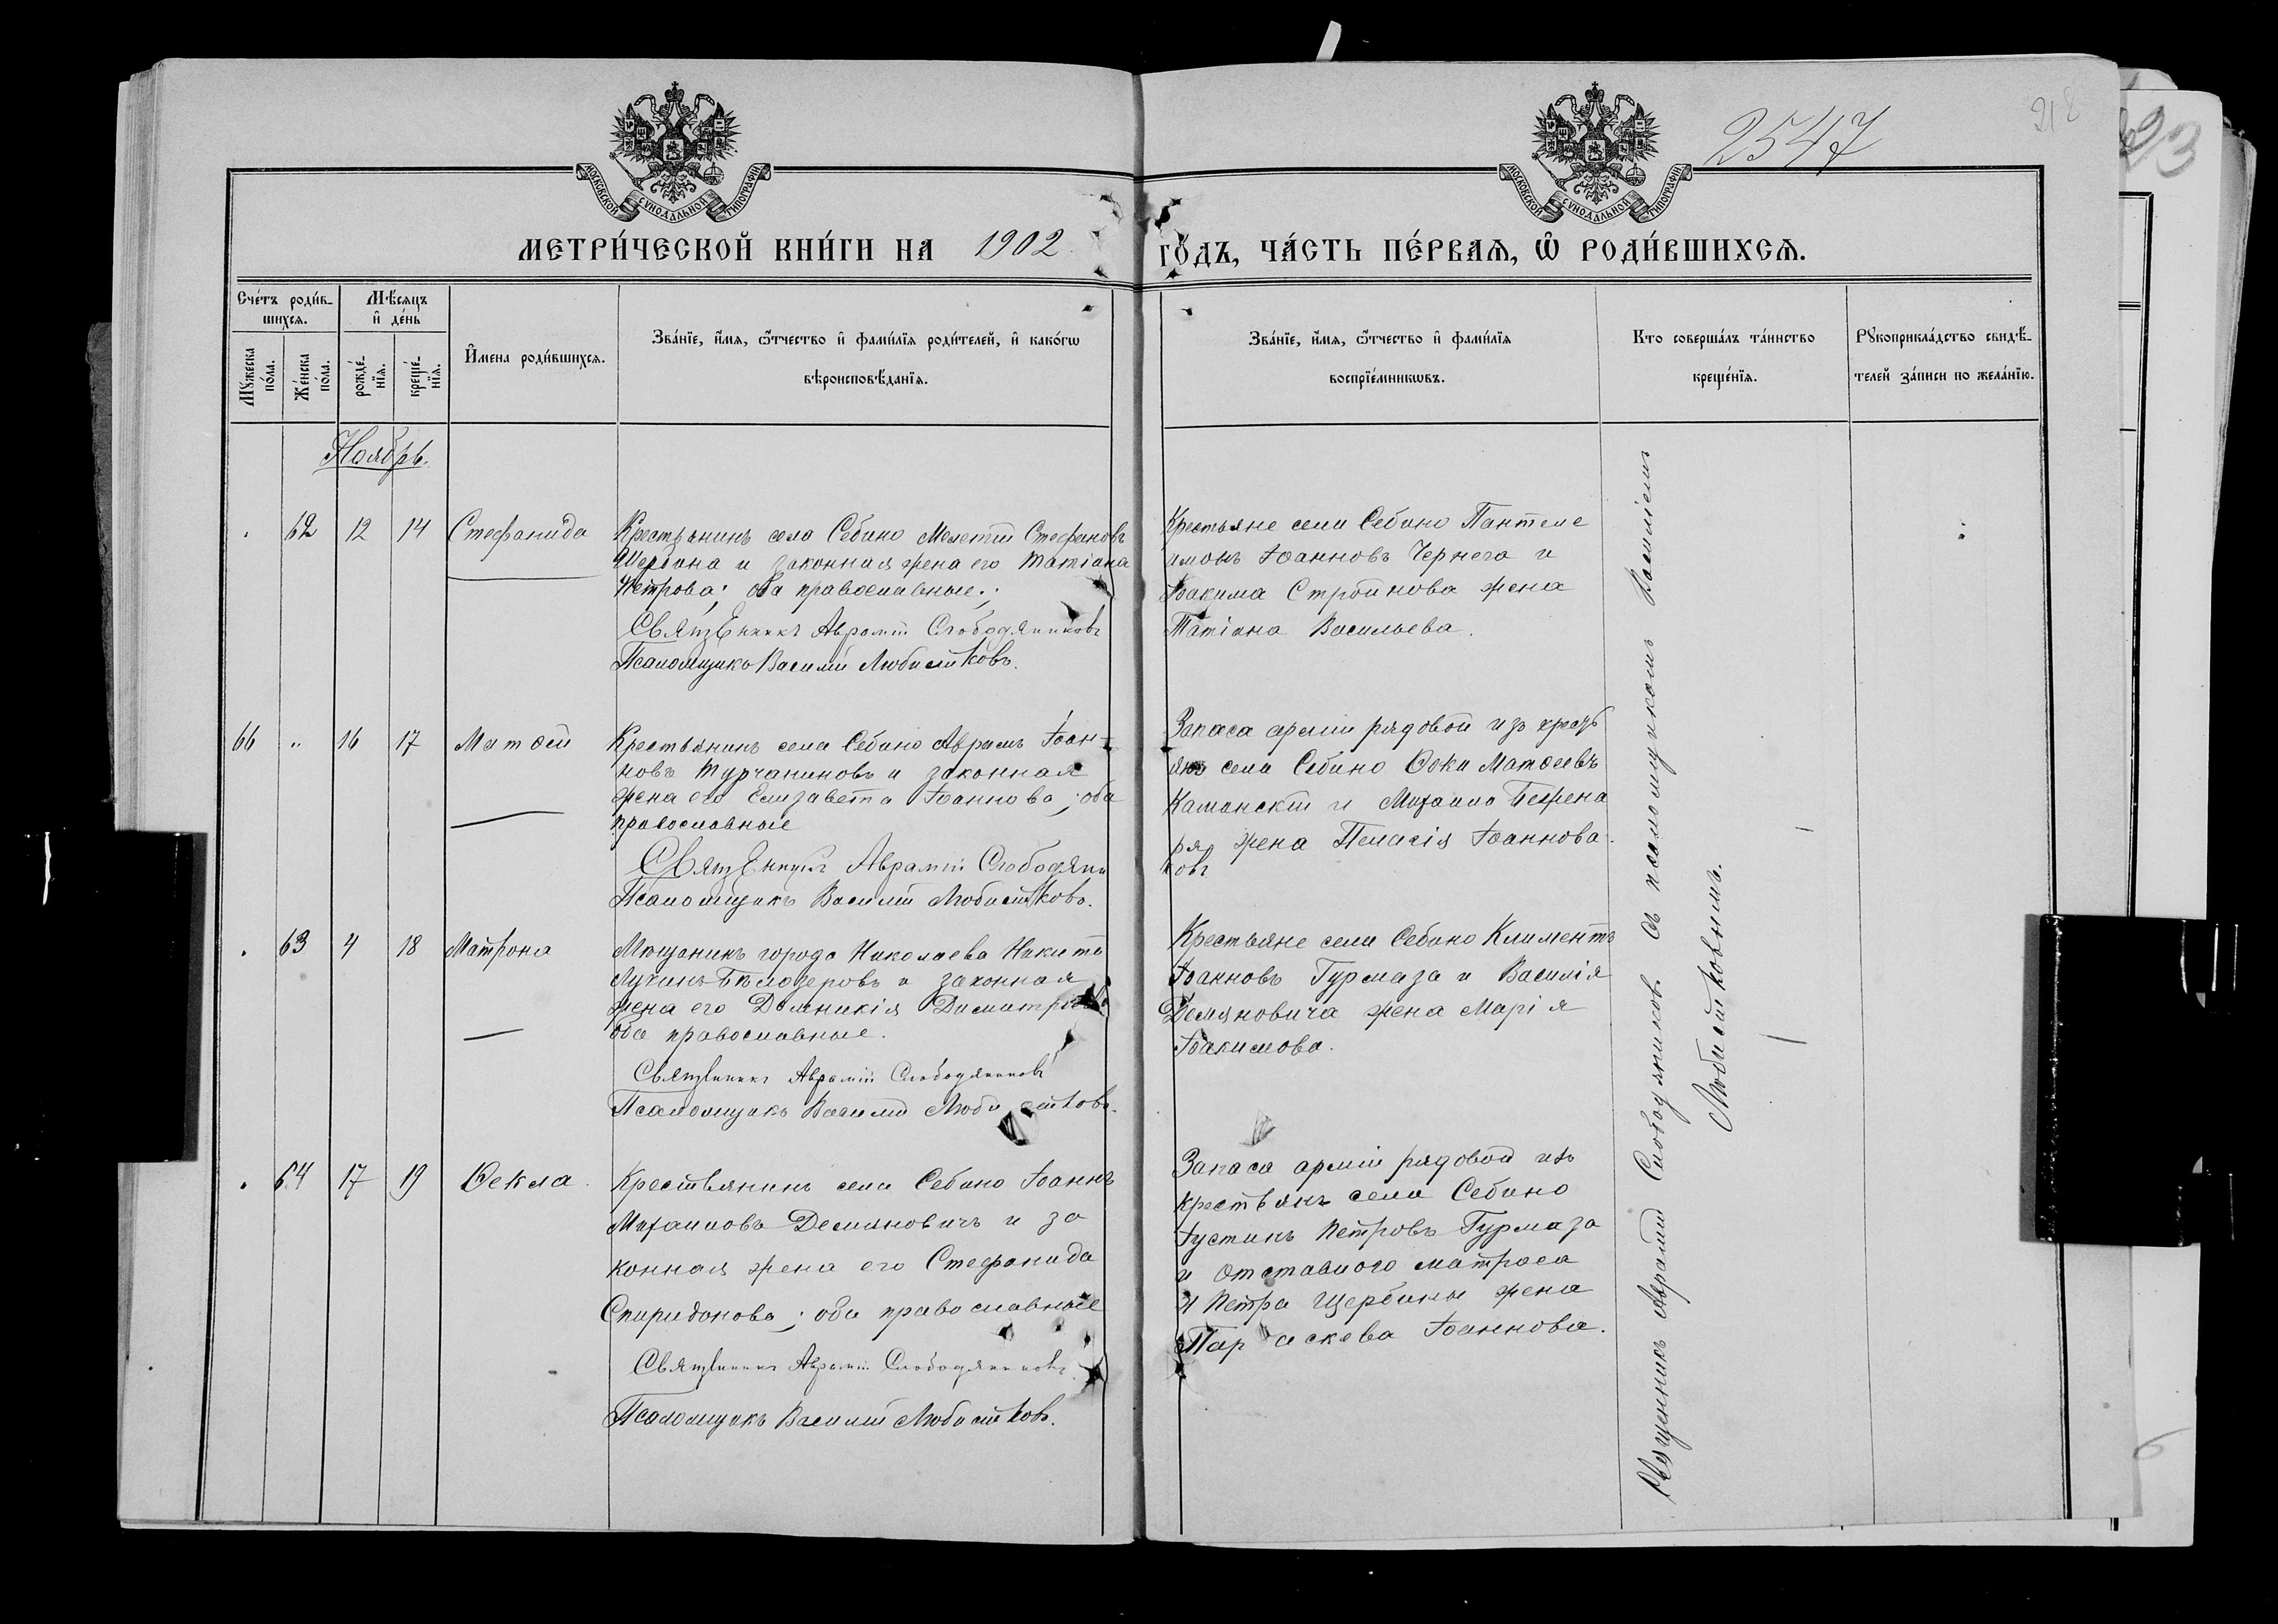 2547
218
23
МОСКОВСКОЙ СѴНОДАЛЬНОЙ ТИПОГРАФІИ
МОСКОВСКОЙ СѴНОДАЛЬНОЙ ТИПОГРАФІИ
МЕТРИ́ЧЕСКОЙ КНИ́ГИ НА 1902 ГО́ДЪ, ЧА́СТЬ ПЕ́РВАЯ, Ѡ҆ РОДИ́ВШИХСЯ.
Сче́тъ роди́в-
шихся.
Мѣ́сяцъ
и҆ де́нь
Мꙋ́жеска
по́ла.
Же́нска
по́ла.
рожде́-
нїя.
креще́-
нїя.
И҆мена роди́вшихся.
Зва́нїе, и҆́мя, ѻ҆́тчество и҆ фами́лїя роди́телей, и҆ како́гѡ
вѣроисповѣ́данїя.
Зва́нїе, и҆́мя, ѻ҆́тчество и҆ фами́лїя
воспрїе́мникѡвъ.
Кто соверша́лъ та́инство
креще́нїя.
Рꙋкоприкла́дство свидѣ́-
телей за́писи по жела́нїю.
Ноябрь.
62 12 14 Стефанида
Крестьянинъ села Себино Мелетій Стефановъ
Щербина и законная жена его Татіана
Петрова; оба православные.;
Священникъ Аврамій Слободяниковъ
Псаломщикъ Василій Любистковъ.
Крестьяне села Себино Пантеле
имонъ Іоанновъ Чернега и
Іоакима Стройнова жена
Татіана Васильева.
66 " 16 17 Матѳей
Крестьянинъ села Себино Аврамъ Іоан-
новъ Турчаниновъ и законная
жена его Елизавета Іоаннова; оба
православные
Священникъ Аврамій Слободяни
ковъ
Псаломщикъ Василій Любистковъ.
Запаса арміи рядовой изъ крестъ
янъ села Себино Ѳоки Матѳеевъ
Каманскій и Михаила Бежена
ря жена Пелагія Іоаннова.
63 4 18 Матрона
Мѣщанинъ города Николаева Никита
Лукинъ Бѣлозеровъ и законная
жена его Домникія Димитр
оба православные.
Священникъ Аврамій Слободяниковъ
Псаломщикъ Василій Любистковъ.
Крестьяне села Себино Климентъ
Іоанновъ Гурмаза и Василія
Демяновича жена Марія
Іоакимова.
64 17 19 Ѳекла.
Крестьянинъ села Себино Іоаннъ
Михаиловъ Демяновичъ и за
конная жена его Стефанида
Спиридонова; оба православные
Священникъ Аврамій Слободяниковъ
Псаломщикъ Василій Любистковъ.
Запаса арміи рядовой изъ
крестьянъ села Себино
Іустинъ Петровъ Гурмаза
и отставного матроса
Петра Щербины жена
Параскева Іоаннова.
Священникъ Аврамій Слободяниковъ съ псаломщикомъ Василіемъ
Любистковымъ.